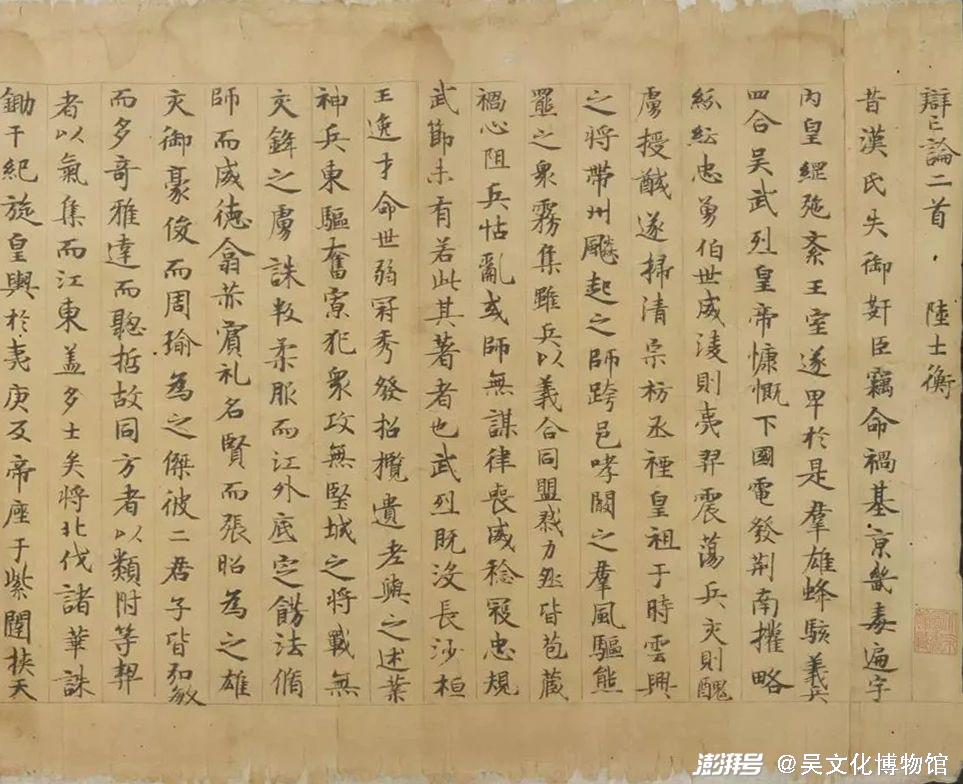 辯亡論二首 . 陸士衡
昔漢氏失御奸臣竊命禍基京畿毒遍宇
內皇綱弛紊王室遂卑於是羣雄蜂駭義兵
四合吳武烈皇帝慷慨下國電發荊南攉略
紛紜忠勇伯世威淩則夷羿震蕩兵交則醜
虜授馘遂掃清宗枋烝禋皇祖于時雲興
之將帶州飈起之師跨邑哮闞之羣風驅熊
羆之衆霧集雖兵以義合同盟勠力然皆苞藏
禍心阻兵怙亂或師無謀律喪威稔寇忠規
武節未有若此其著者也武烈既没長沙桓
王逸才命世弱冠秀發招攬遺老與之述業
神兵東驅奮寡犯衆攻無堅城之將戰無
交鋒之虜誅叛柔服而江外底定餝法脩
師而威德翕赫賓礼名賢而張昭為之雄
交御豪俊而周瑜為之傑彼二君子皆弘敏
而多奇雅達而聰哲故同方者以類附等契
者以氣集而江東盖多士矣將北伐諸華誅
鋤干紀旋皇輿於夷庚反帝座于紫闥挾天
澎湃号 @吴文化博物馆